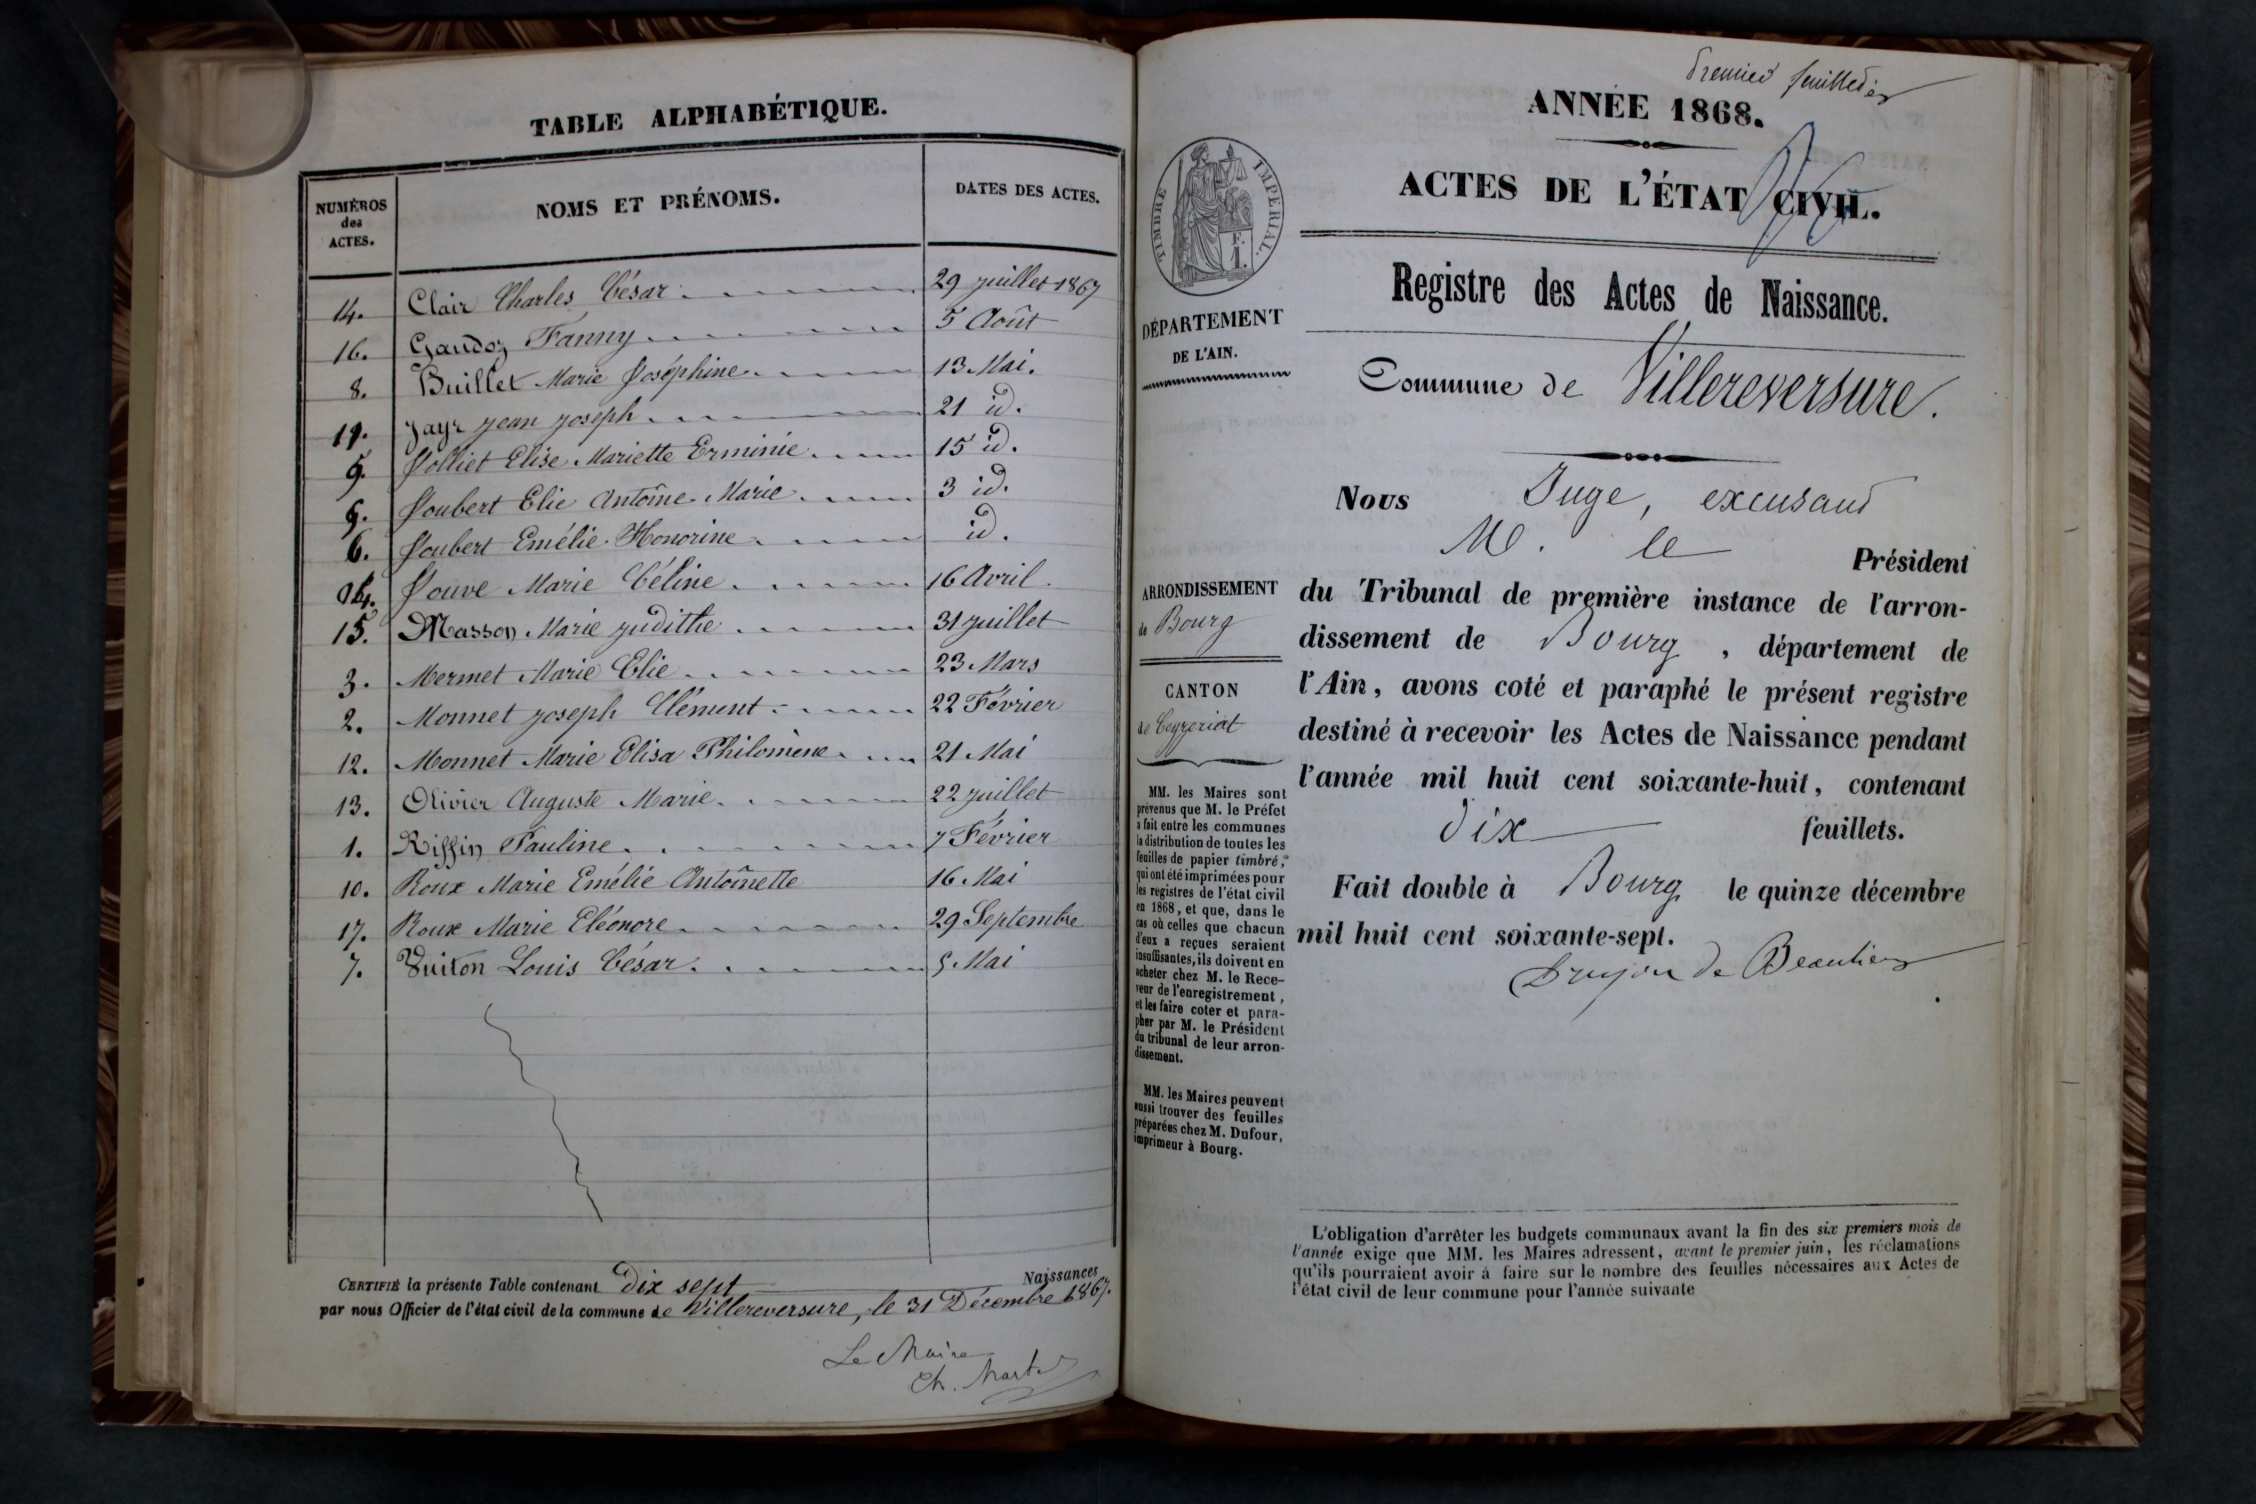 TABLE ALPHABÉTIQUE.
NUMÉROS des ACTES. NOMS ET PRÉNOMS. DATES DES ACTES.
14. Clair Charles César 29 juillet 1867
16. Gaudoz Fanny 5 Août
8. Buillet Marie Joséphine 13 Mai.
11. Jayr jean joseph 21 id.
9. Jolliet Elise Mariette Erminie 15 id.
5. Joubert Elie Antoîne Marie 3 id.
6. Joubert Emélie Honorine id.
4. Jouve Marie Céline 16 Avril
15. Masson Marie judithe 31 juillet
3. Mermet Marie Elie 23 Mars
2. Monnet joseph Clément 22 Février
12. Monnet Marie Elisa Philomène 21 Mai
13. Olivier Auguste Marie 22 juillet
1. Riffin Pauline 7 Février
10. Roux Marie Emélie Antoînette 16 Mai
17. Roux Marie Eléonore 29 Septembre
7. Vuiton Louis César 5 Mai
CERTIFIÉ la présente Table contenant Dix sept Naissances
par nous Officier de l'état civil de la commune de Villereversure, le 31 Décembre 1867.
Le Maire
Premier feuillet
ANNÉE 1868.
ACTES DE L'ÉTAT CIVIL.
TIMBRE IMPÉRIAL.
Registre des Actes de Naissance.
DÉPARTEMENT
DE L'AIN.
Commune de Villereversure.
Nous Juge, excusant
M. le Président
ARRONDISSEMENT
de Bourg
CANTON
de Ceyzeriat
du Tribunal de première instance de l'arron-
dissement de Bourg, département de
l'Ain, avons coté et paraphé le présent registre
destiné à recevoir les Actes de Naissance pendant
l'année mil huit cent soixante-huit, contenant
dix feuillets.
Fait double à Bourg le quinze décembre
mil huit cent soixante-sept.
Drujon de Beaulieu
MM. les Maires sont
prévenus que M. le Préfet
a fait entre les communes
la distribution de toutes les
feuilles de papier timbré,
qui ont été imprimées pour
les registres de l'état civil
en 1868, et que, dans le
cas où celles que chacun
d'eux a reçues seraient
insuffisantes, ils doivent en
acheter chez M. le Rece-
veur de l'enregistrement,
et les faire coter et para-
pher par M. le Président
du tribunal de leur arron-
dissement.
MM. les Maires peuvent
aussi trouver des feuilles
préparées chez M. Dufour,
imprimeur à Bourg.
L'obligation d'arrêter les budgets communaux avant la fin des six premiers mois de
l'année exige que MM. les Maires adressent, avant le premier juin, les réclamations
qu'ils pourraient avoir à faire sur le nombre des feuilles nécessaires aux Actes de
l'état civil de leur commune pour l'année suivante